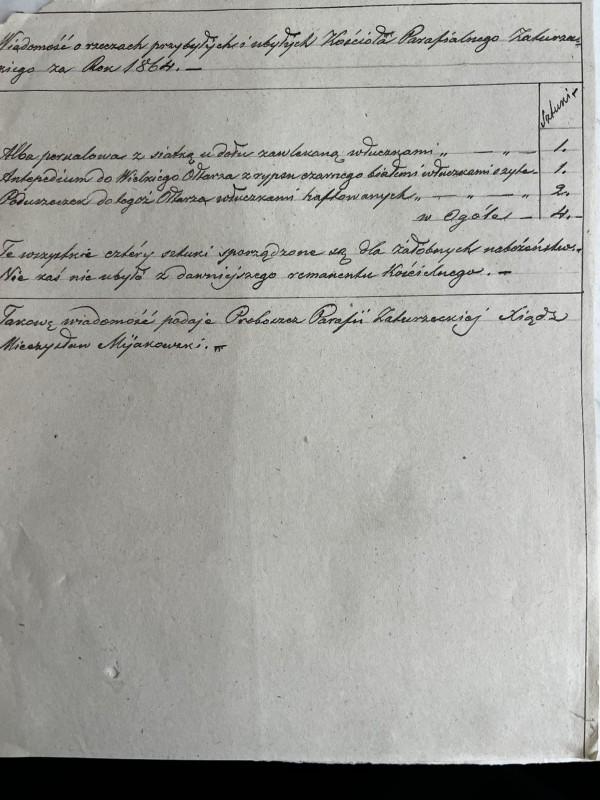 Wiadomość o rzeczach przybyłych i ubyłych Kościoła Parafialnego Zaturzec-
kiego za Rok 1864. —
Sztuki. —
Alba perkalowa z siatką u dołu zawlekaną włuczkami „ — — „ — 1.
Antepedium do Wielkiego Ołtarza z rypsu czarnego białemi włuczkami szyte — 1.
Poduszeczek do tegoż Ołtarza włuczkami haftowanych „ — „ — „ — 2.
w Ogóle — 4. —
Te wszystkie cztéry sztuki sporządzone są dla żałobnych nabożeństw. —
Nic zaś nie ubyło z dawniejszego remanentu Kościelnego. —
Takową wiadomość podaje Proboszcz Parafii Zaturzeckiej Xiądz
Mieczysław Mijakowski. —